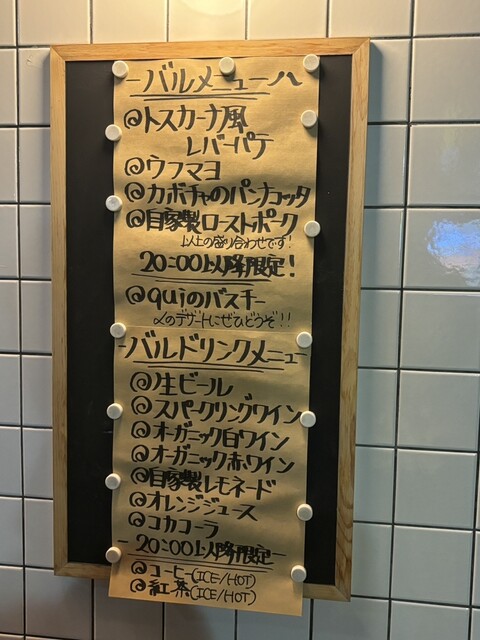 -バルメニュー-
@トスカーナ風
レバーパテ
@ウフマヨ
@カボチャのパンナコッタ
@自家製ローストポーク
以上の盛り合わせです!
20:00以降限定!
@quiのバスチー
〆のデザートにぜひどうぞ!!
-バルドリンクメニュー-
@生ビール
@スパークリングワイン
@オーガニック白ワイン
@オーガニック赤ワイン
@自家製レモネード
@オレンジジュース
@コカコーラ
-20:00以降限定-
@コーヒー(ICE/HOT)
@紅茶(ICE/HOT)